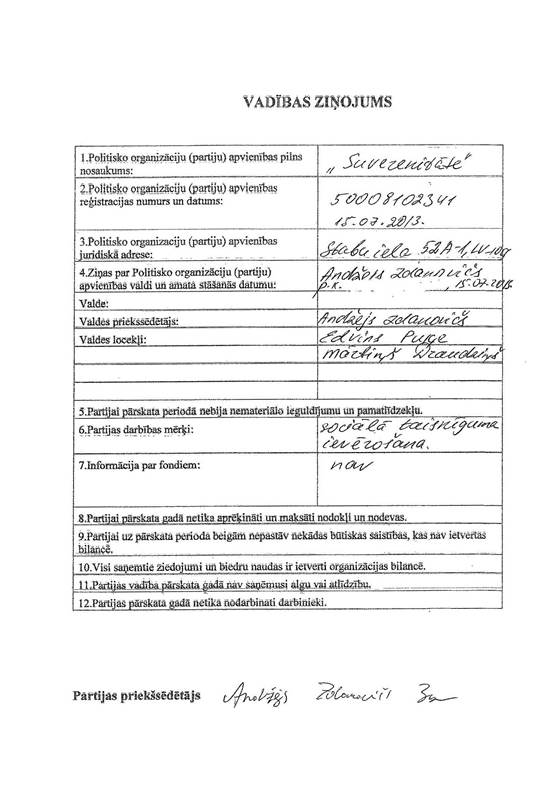 VADĪBAS ZIŅOJUMS
1.Politisko organizāciju (partiju) apvienības pilns
nosaukums:
„Suverenitāte"
2.Politisko organizāciju (partiju) apvienības
reģistrācijas numurs un datums:
50008102341
15.07.2013.
3.Politisko organizaciju (partiju) apvienības
juridiskā adrese:
Stabu iela 52A-1, LV-109
4.Ziņas par Politisko organizāciju (partiju)
apvienības valdi un amata stāšanās datumu:
Andžejs Zolanovičs
p.k. , 15.07.2013.
Valde:
Valdes priekšsēdētājs:
Andžejs Zolanovičs
Valdes locekļi:
Edvins Puķe
Mārtiņš
5.Partijai pārskata periodā nebija nemateriālo ieguldījumu un pamatlīdzekļu.
6.Partijas darbības mērķi:
sociālā taisnīguma
ievērošana.
7.Informācija par fondiem:
nav
8.Partijai pārskata gadā netika aprēķināti un maksāti nodokļi un nodevas.
9.Partijai uz pārskata perioda beigām nepastāv nekādas būtiskas saistības, kas nav ietvertas
bilancē.
10.Visi saņemtie ziedojumi un biedru naudas ir ietverti organizācijas bilancē.
11.Partijas vadība pārskata gadā nav saņēmusi algu vai atlīdzību.
12.Partijas pārskata gadā netika nodarbināti darbinieki.
Partijas priekšsēdētājs Andžejs Zolanovičs